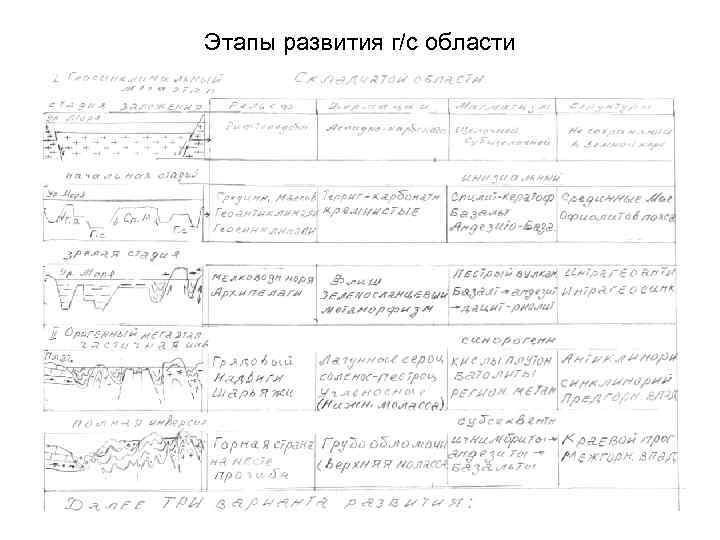 Этапы развития г/с области
I. Геосинклинальный
мегаэтап
Складчатой области
стадия заложения Рельеф Формации Магматизм Структуры
Ур. моря
Рифтоподобн Аспидно-карбонатн Щелочной Не сохранились
Субщелочной в земной коре
начальная стадия инициальный
Ур. моря
Срединн. массив Террит-карбонатн Спилит-кератоф Срединные мас
Геоантиклинали Кремнистые Базалы Офиолитов пояса
Геосинклинали Андезито-База
Г.А. Ср. М
Г.С. Г.С.
зрелая стадия
Ур. моря
Мелководн моря Флиш Пестрый вулкан Интрагеоанти
Архипелаги Зеленосланцевый Базалт→андезит Интрагеосинк
метаморфизм →дацит-риолит
II Орогенный мегаэтап
частичная инв синорогенн
Плат.
Грядовый Лагунные сероц Кислы плутон Антиклинори
Надвиги соленос-пестроц Батолиты Синклинорий
Шарьяжи Угленосные Регион. метам Предгорн. впад
(Нижн. моласса)
полная инверсия субсеквентн
Горная страна Грубообломочн игнимбриты→ Краевой прог
на месте (Верхняя моласса андезиты→ Межгорн. впад
прогиба Базальты
Далее три варианта развития: